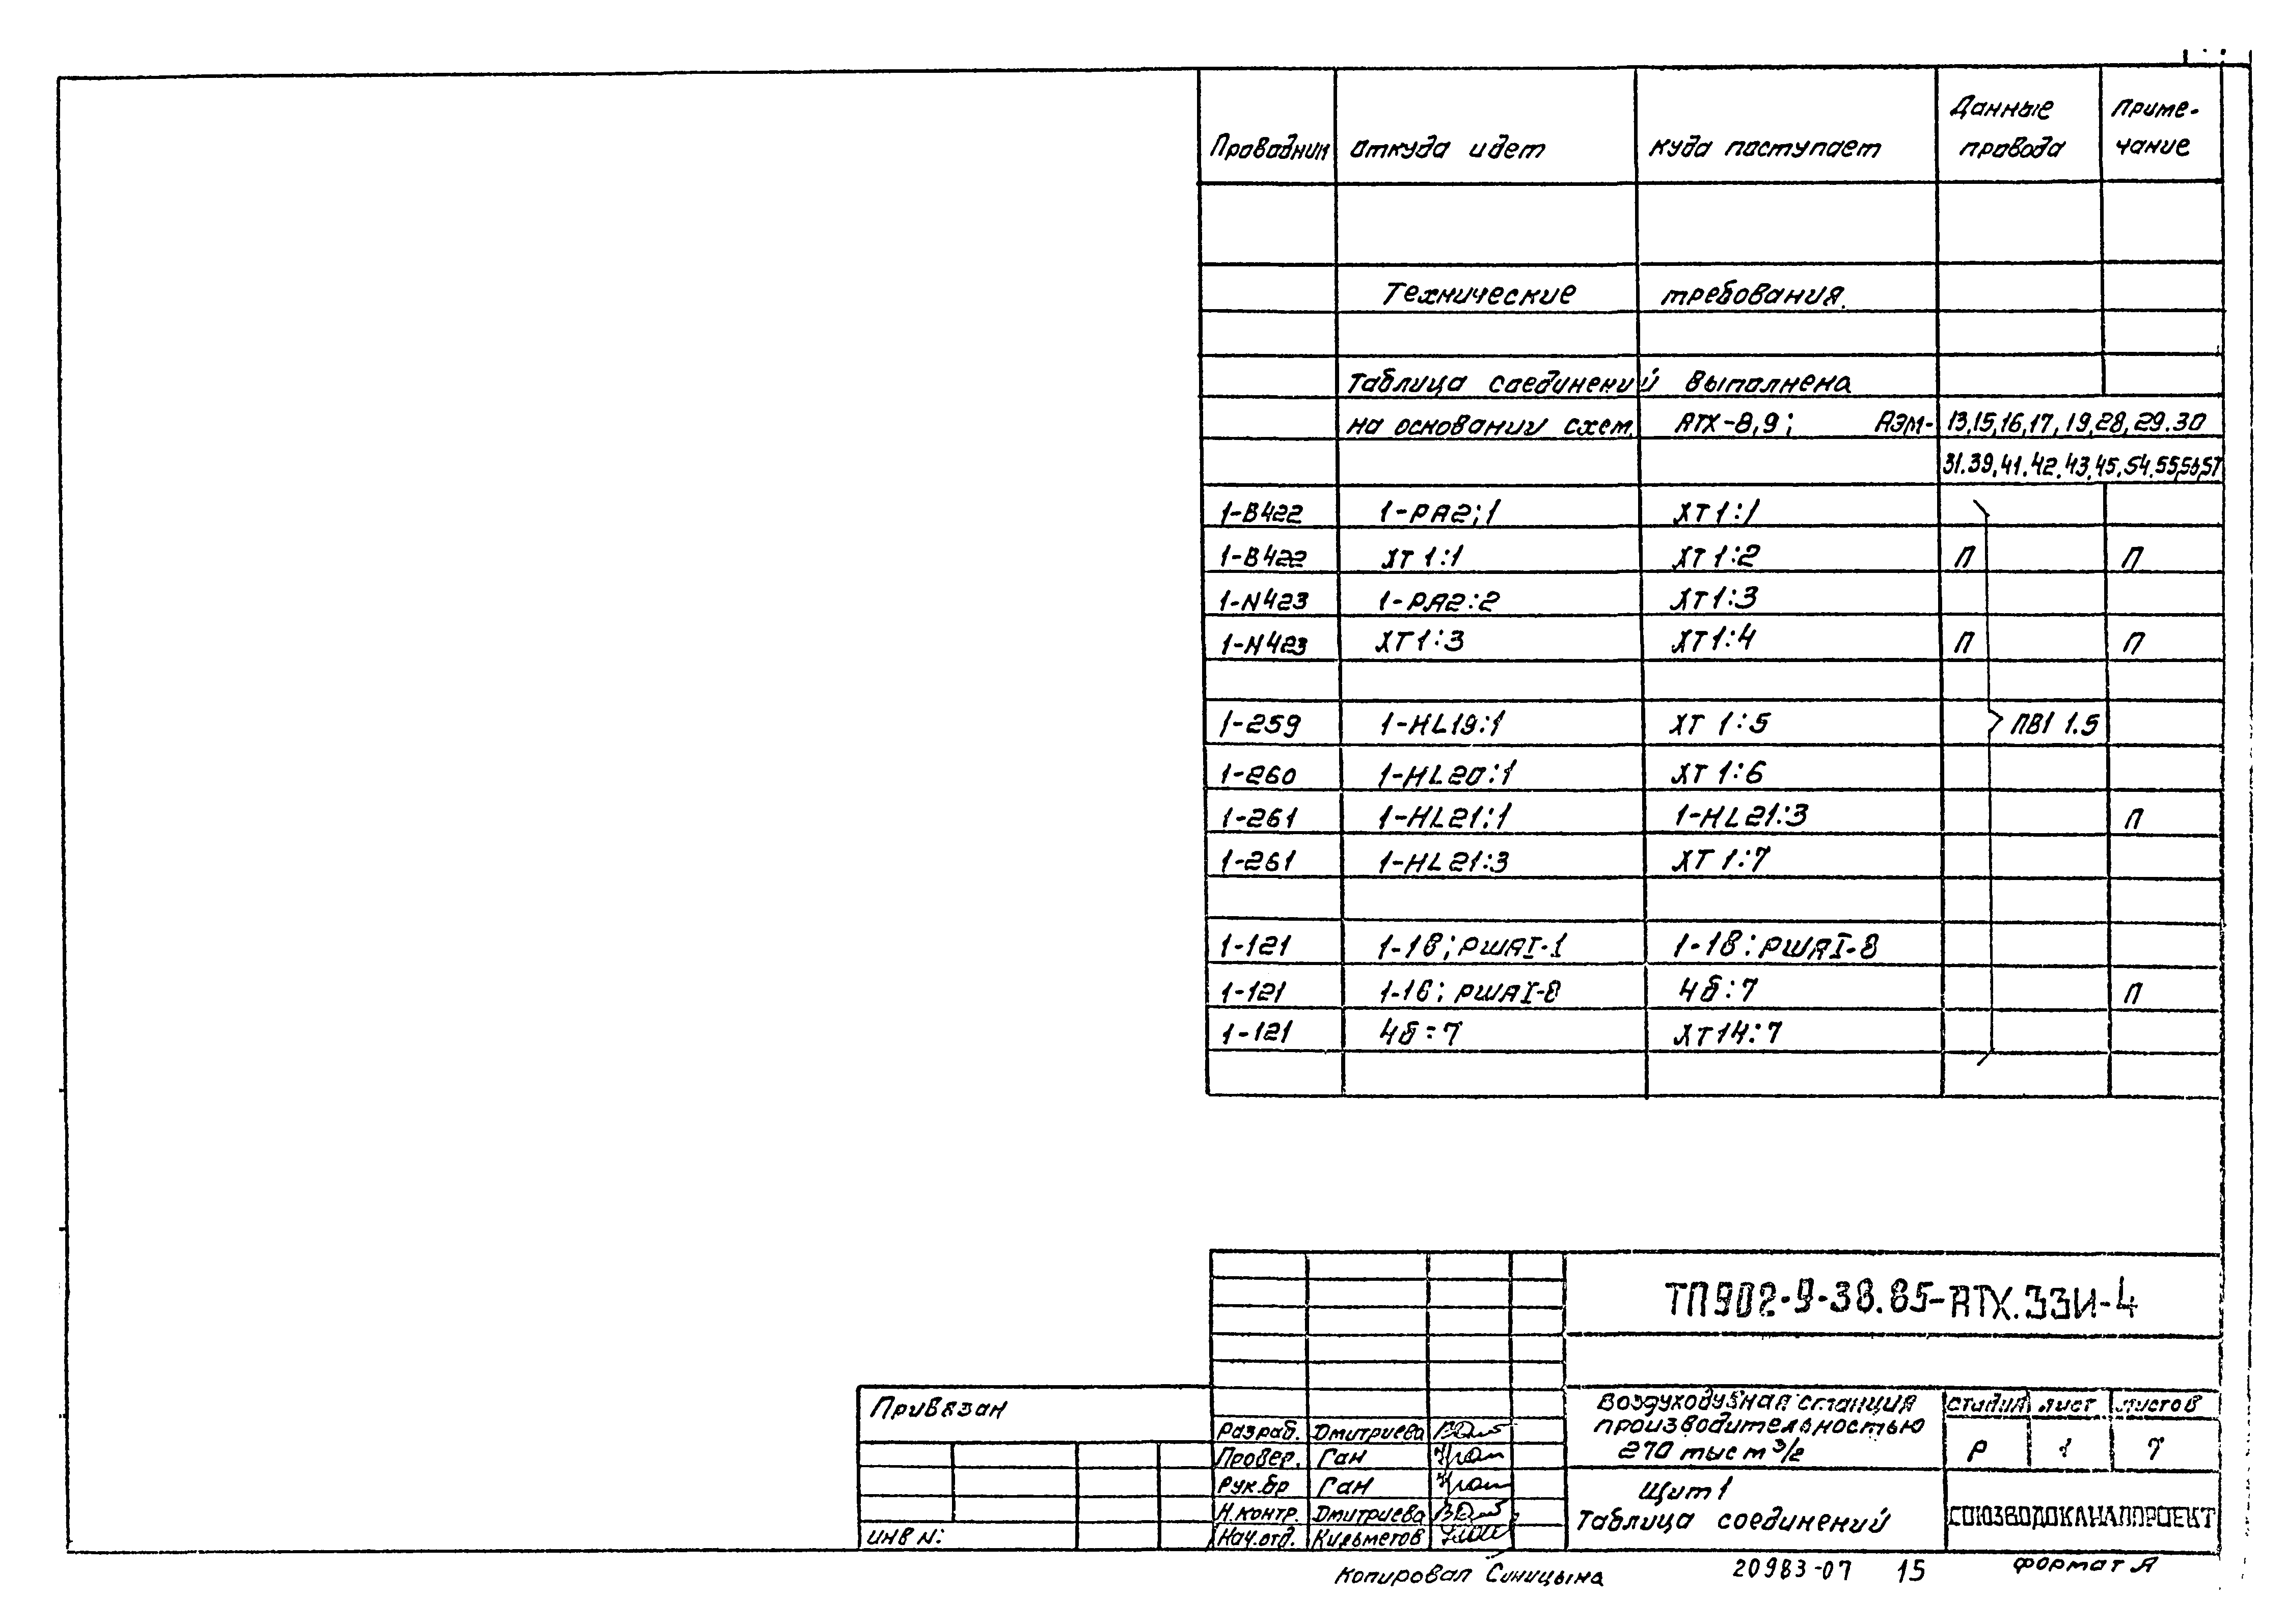 Проводник откуда идет куда поступает Данные провода Приме-чание
Технические требования.
Таблица соединений выполнена
на основании схем АТХ-8,9; АЭМ- 13,15,16,17,19,28,29.30
31.39,41.42.43,45.54.55,56,57
1-В422 1-РА2;1 ХТ1:1
1-В422 ХТ1:1 ХТ1:2 П П
1-N423 1-РА2:2 ХТ1:3
1-N423 ХТ1:3 ХТ1:4 П П
1-259 1-HL19:1 ХТ1:5 ПВ1 1.5
1-260 1-HL20:1 ХТ1:6
1-261 1-HL21:1 1-HL21:3 П
1-261 1-HL21:3 ХТ1:7
1-121 1-1в; РШАI-1 1-1в: РШАI-8
1-121 1-1в; РШАI-8 4б:7 П
1-121 4б:7 ХТ14:7
ТП902-9-38.85-АТХ.ЗЗИ-4
Привязан
инв N:
Разраб. Дмитриева
Провер. Ган
Рук.бр Ган
Н.контр. Дмитриева
Нач.отд.
Воздуходувная станция
производительностью
270 тыс м³/г
стадия лист листов
Р 1 7
Щит 1
Таблица соединений
СОЮЗВОДОКАНАЛПРОЕКТ
Копировал Синицына 20983-07 15 формат А